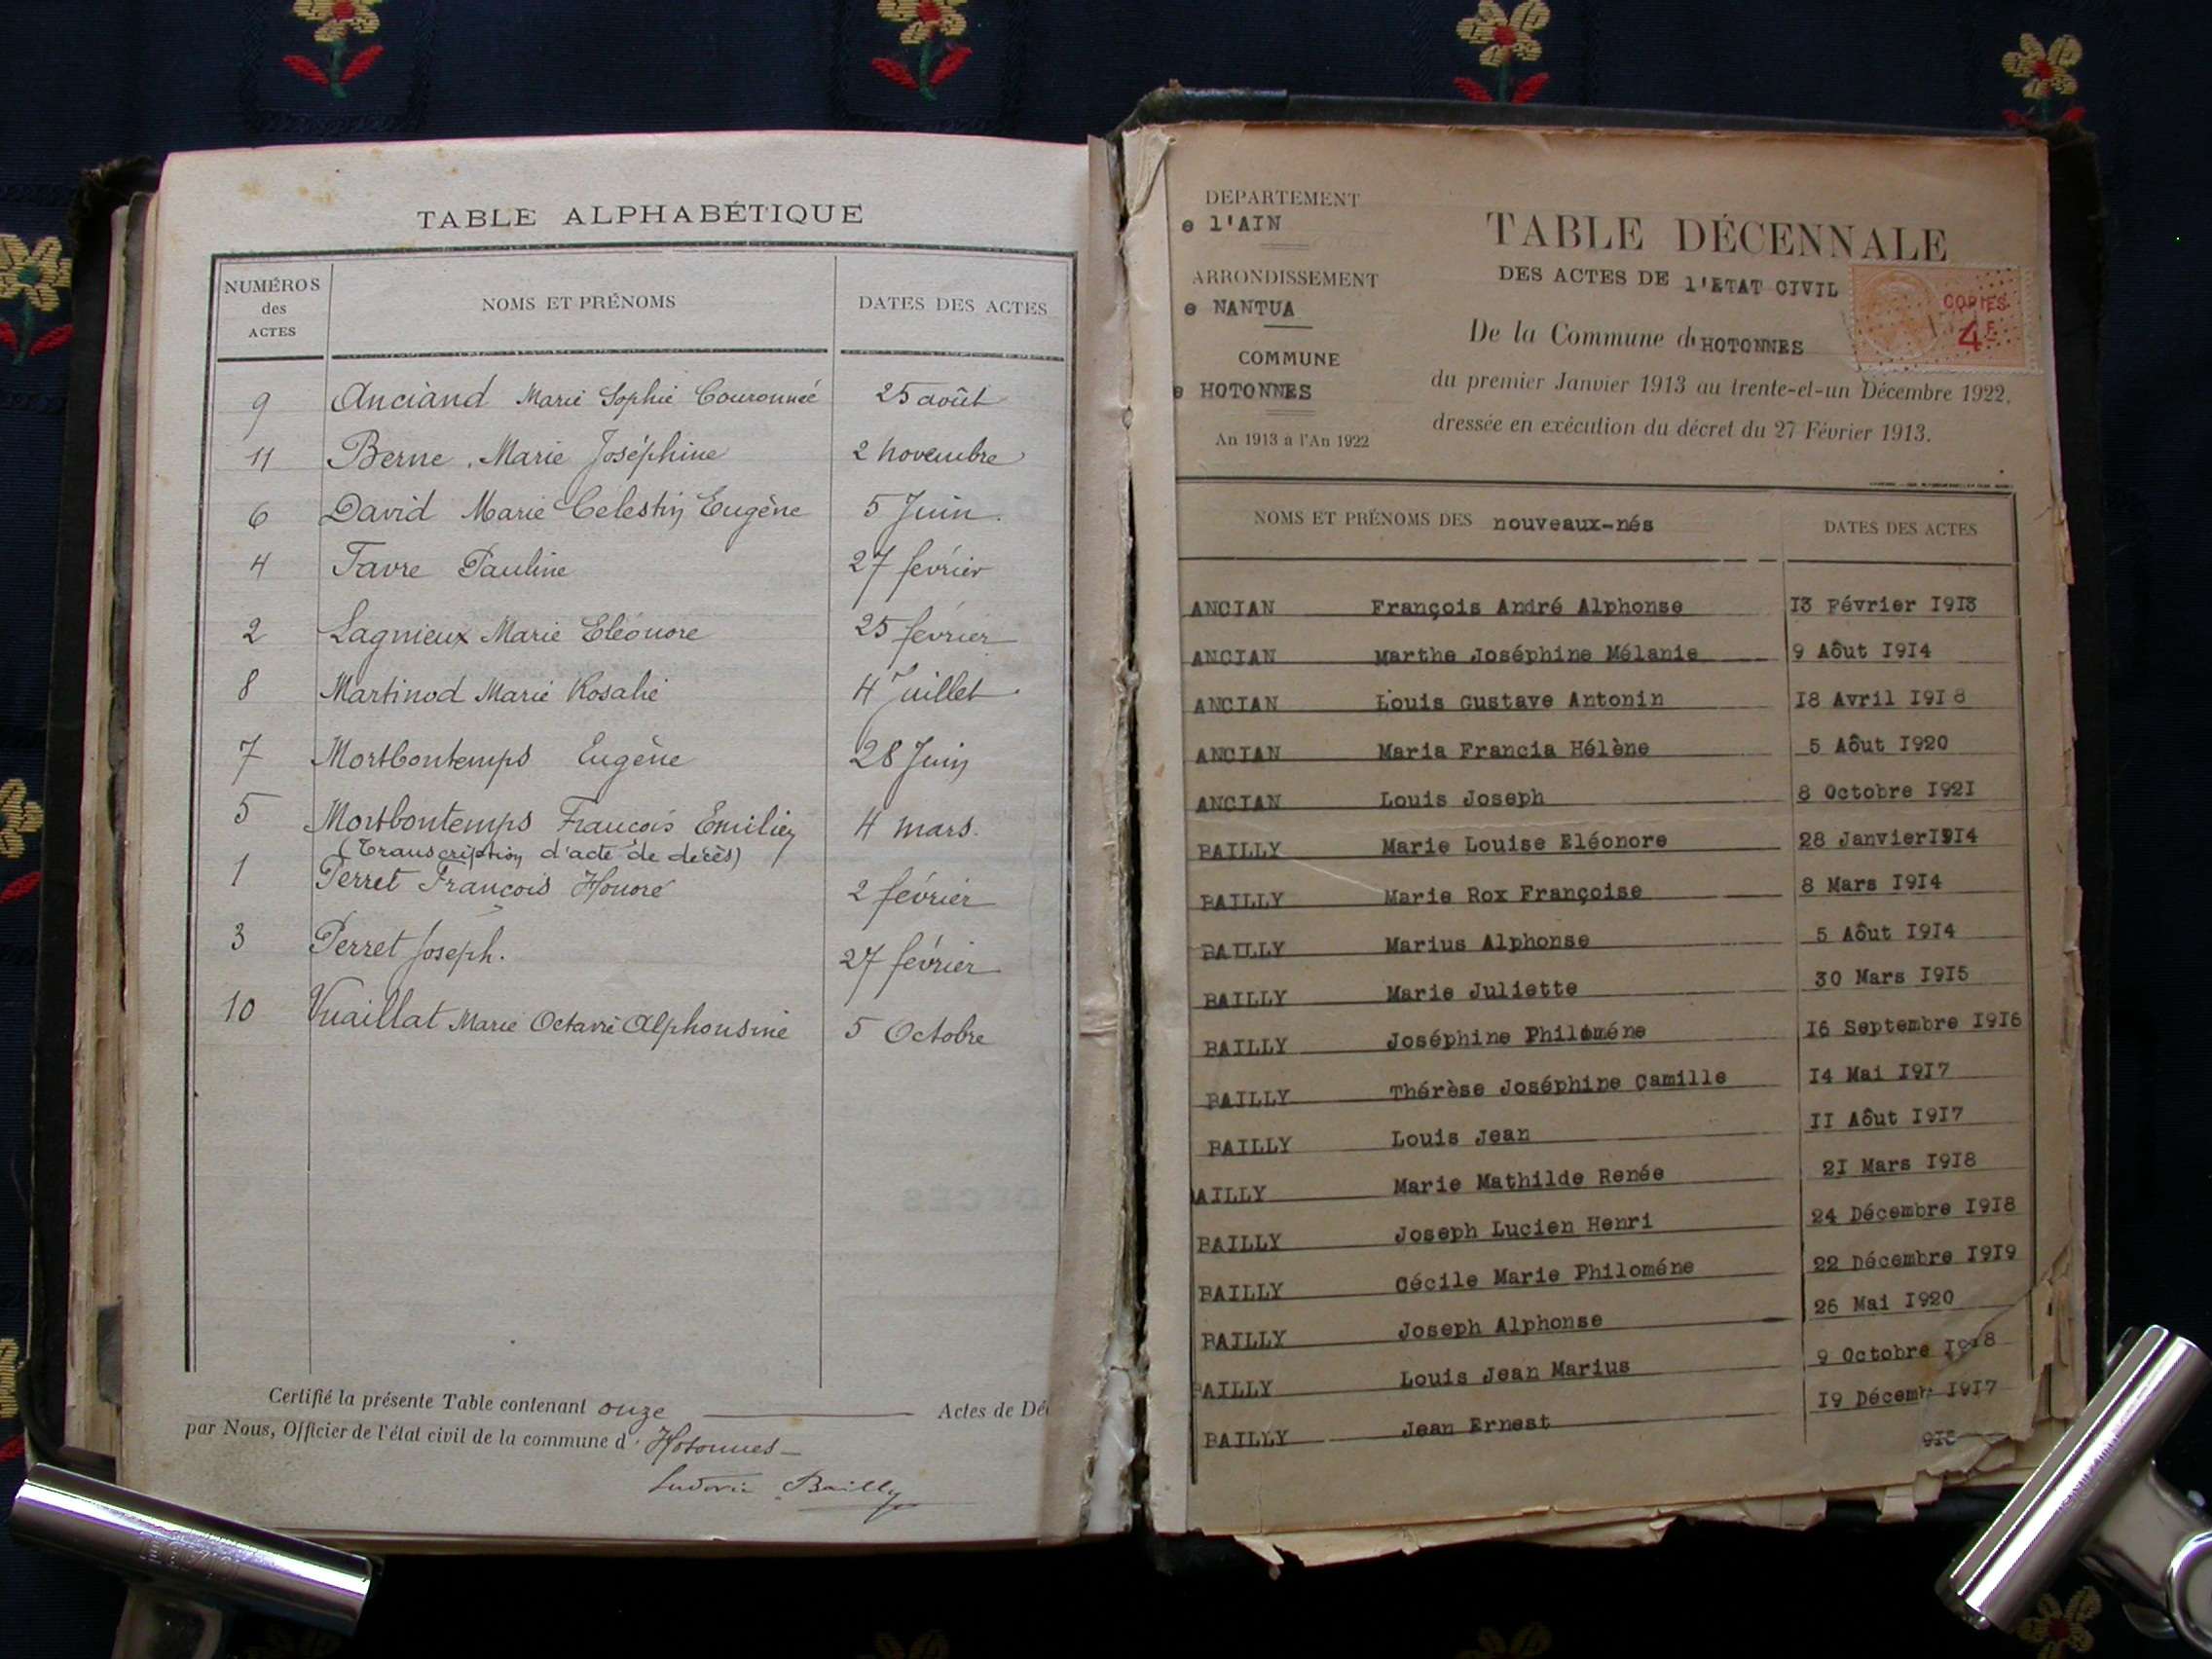 TABLE ALPHABÉTIQUE
NUMÉROS des ACTES NOMS ET PRÉNOMS DATES DES ACTES
9 Anciand Marie Sophie Couronnée 25 août
11 Berne Marie Joséphine 2 novembre
6 David Marie Célestin Eugène 5 Juin.
4 Favre Pauline 27 février
2 Lagnieux Marie Eléonore 25 février
8 Martinod Marie Rosalie 4 Juillet
7 Mortbontemps Eugène 28 Juin
5 Mortbontemps François Emilien 4 mars.
(Transcription d'acte de décès)
1 Perret François Honoré 2 février
3 Perret Joseph. 27 février
10 Vuaillat Marie Octavie Alphonsine 5 Octobre
Certifié la présente Table contenant onze Actes de Déc
par Nous, Officier de l'état civil de la commune d' Hotonnes
Ludovic Bailly
DEPARTEMENT
e l'AIN
ARRONDISSEMENT
e NANTUA
COMMUNE
e HOTONNES
An 1913 à l'An 1922
TABLE DÉCENNALE
DES ACTES DE l'ETAT CIVIL
COPIES
4F
De la Commune d'HOTONNES
du premier Janvier 1913 au trente-et-un Décembre 1922,
dressée en exécution du décret du 27 Février 1913.
NOMS ET PRÉNOMS DES nouveaux-nés DATES DES ACTES
ANCIAN François André Alphonse 13 Février 1913
ANCIAN Marthe Joséphine Mélanie 9 Aôut 1914
ANCIAN Louis Gustave Antonin 18 Avril 1918
ANCIAN Maria Francia Hélène 5 Aôut 1920
ANCIAN Louis Joseph 8 Octobre 1921
BAILLY Marie Louise Eléonore 28 Janvier 1914
BAILLY Marie Rox Françoise 8 Mars 1914
BAILLY Marius Alphonse 5 Aôut 1914
BAILLY Marie Juliette 30 Mars 1915
BAILLY Joséphine Philoméne 16 Septembre 1916
BAILLY Thérèse Joséphine Camille 14 Mai 1917
BAILLY Louis Jean 11 Aôut 1917
AILLY Marie Mathilde Renée 21 Mars 1918
BAILLY Joseph Lucien Henri 24 Décembre 1918
BAILLY Cécile Marie Philoméne 22 Décembre 1919
BAILLY Joseph Alphonse 26 Mai 1920
BAILLY Louis Jean Marius 9 Octobre 1918
BAILLY Jean Ernest 19 Décemb 1917